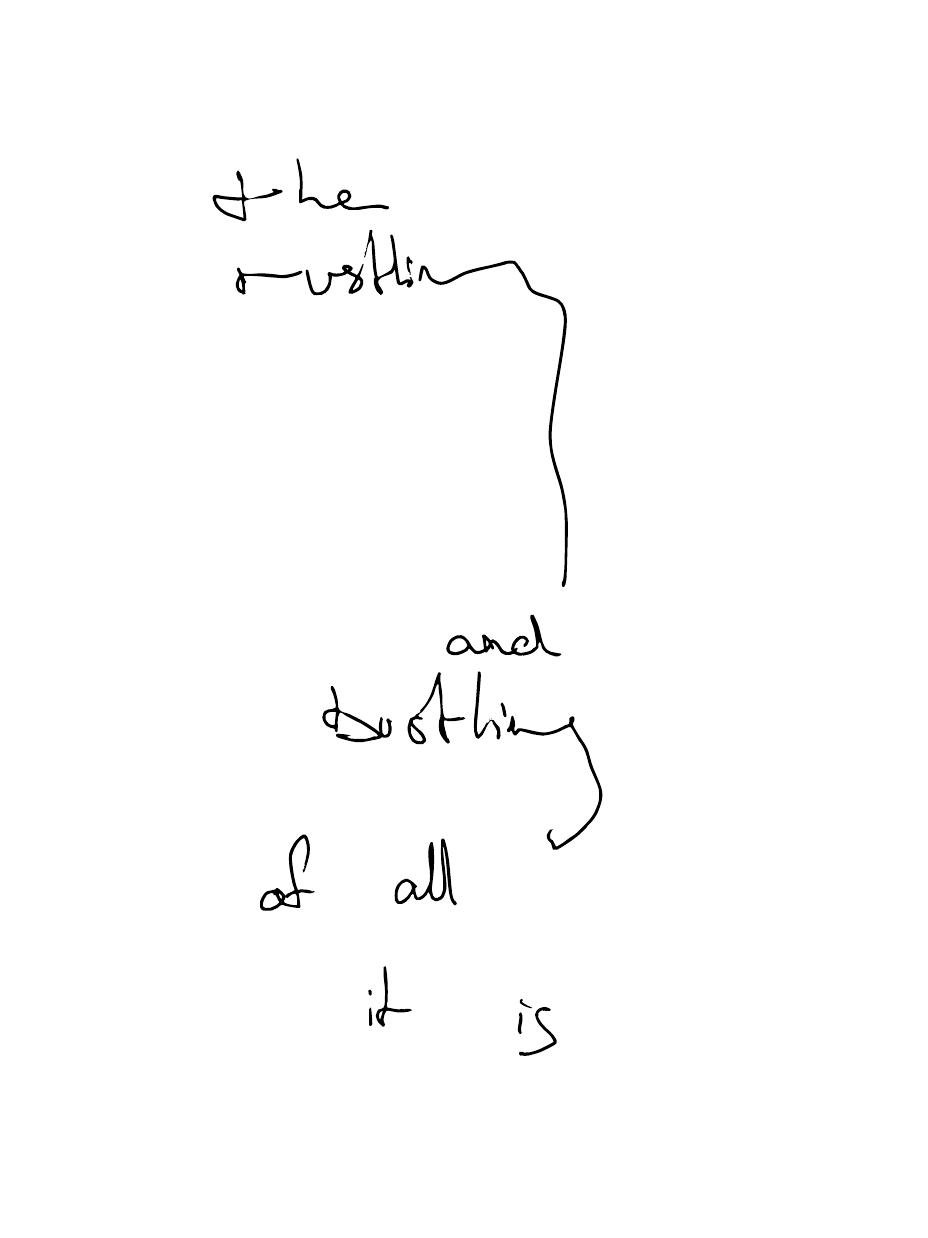 the
rustling
and
bustling
of all
it is